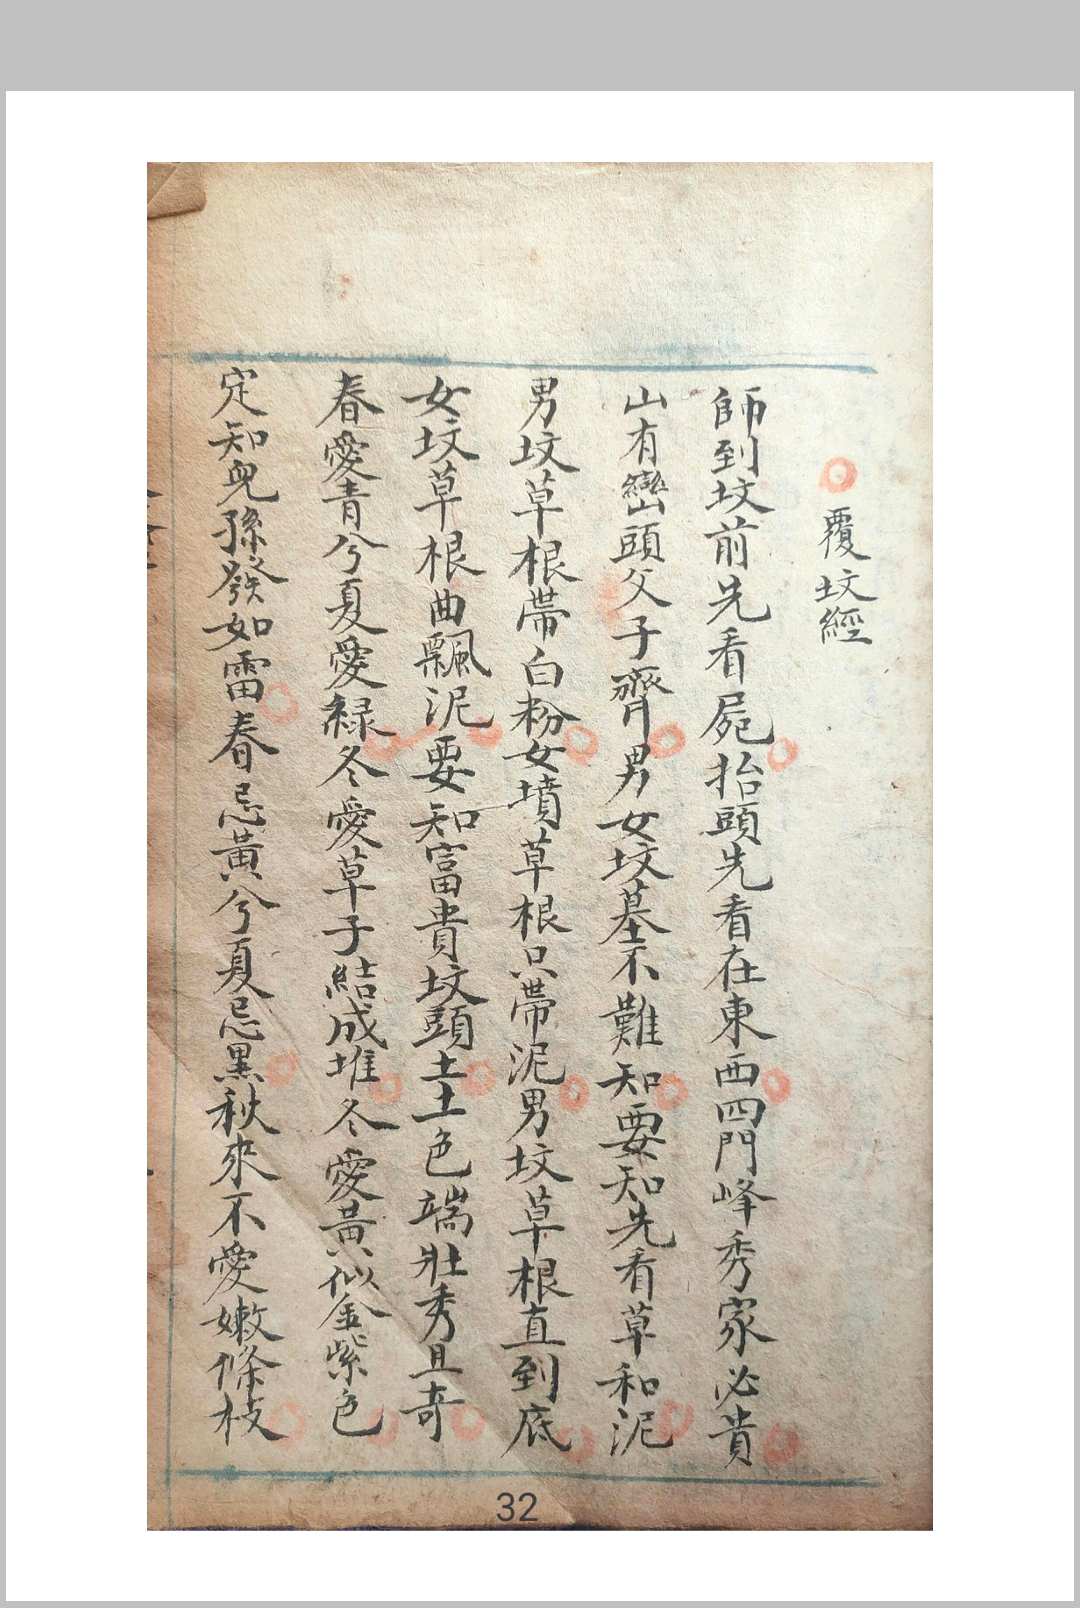 覆坟經
師到坟前先看屍抬頭先看在東西四門峰秀家必貴
山有巒頭父子齊男女坟墓不難知要知先看草和泥
男坟草根帶白粉女墳草根只帶泥男坟草根直到底
女坟草根曲飄泥要知富貴坟頭土土色端壯秀且奇
春愛青兮夏愛緑冬愛草子結成堆冬愛黃似金紫色
定知兒孫發如雷春忌黃兮夏忌黑秋來不愛嫩條枝
32